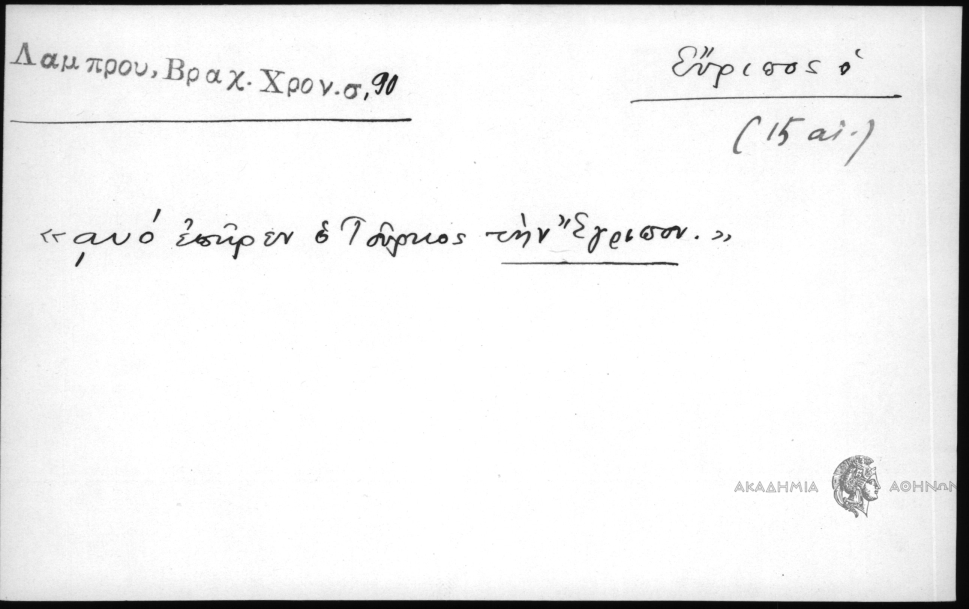 Λαμπρου, Βραχ. Χρον. σ, 90
Εὔριπος ὁ
(15 αἰ.)
«͵αυό ἐπῆρεν ὁ Τοῦρκος τὴν Ἔγριπον.»
ΑΚΑΔΗΜΙΑ ΑΘΗΝΩΝ